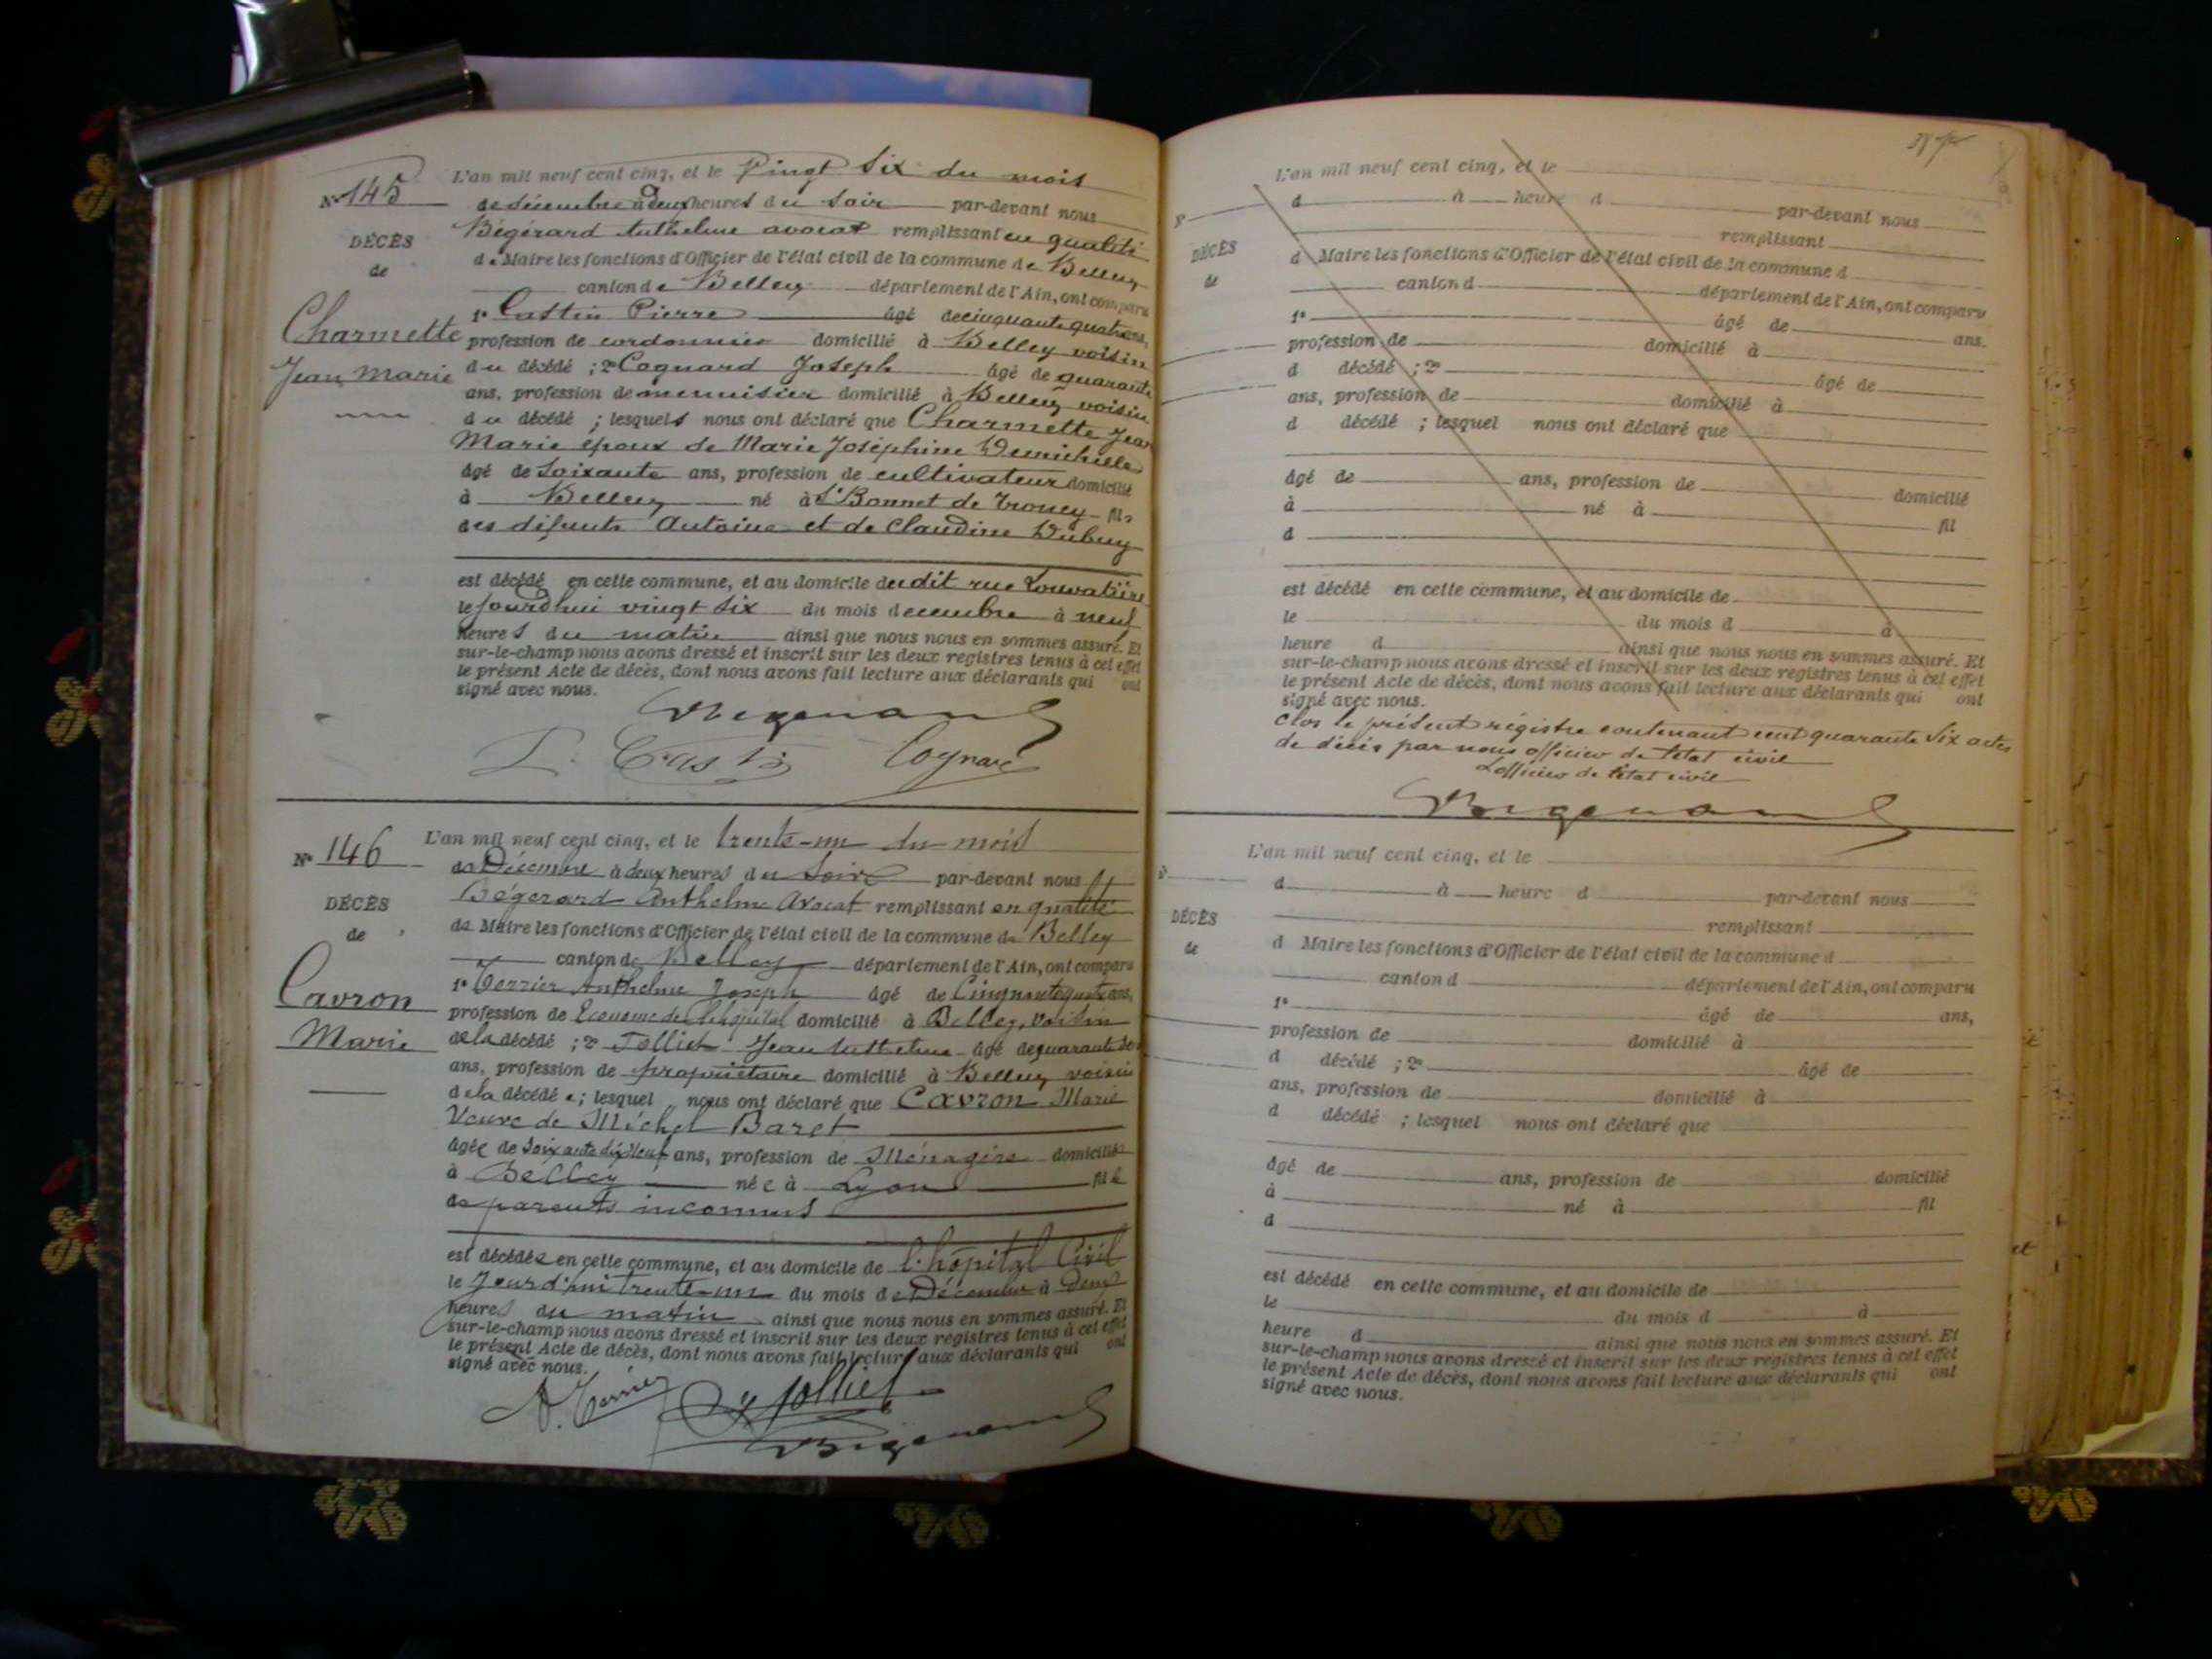 N° 145
DÉCÈS
de
Charmette
Jean Marie
L'an mil neuf cent cinq, et le Vingt Six du mois
de décembre à deux heures du soir par-devant nous
Bégérard Anthelme avocat remplissant en qualité
de Maire les fonctions d'Officier de l'état civil de la commune de Belley
canton de Belley département de l'Ain, ont comparu
1° Castin Pierre âgé de cinquante quatre ans,
profession de cordonnier domicilié à Belley voisin
du décédé ; 2° Cognard Joseph âgé de quarante
ans, profession de menuisier domicilié à Belley voisin
du décédé ; lesquels nous ont déclaré que Charmette Jean
Marie époux de Marie Joséphine
âgé de soixante ans, profession de cultivateur domicilié
à Belley né à St Bonnet de fils
des défunts Antoine et de Claudine Dubuy
est décédé en cette commune, et au domicile du dit rue
le jourd'hui vingt six du mois decembre à neuf
heures du matin ainsi que nous nous en sommes assuré. Et
sur-le-champ nous avons dressé et inscrit sur les deux registres tenus à cet effet
le présent Acte de décès, dont nous avons fait lecture aux déclarants qui ont
signé avec nous.
Bégérard
P. Castin Cognard
N° 146
DÉCÈS
de
Cavron
Marie
L'an mil neuf cent cinq, et le trente-un du mois
de Décembre à deux heures du Soir par-devant nous
Bégérard Anthelme Avocat remplissant en qualité
de Maire les fonctions d'Officier de l'état civil de la commune de Belley
canton de Belley département de l'Ain, ont comparu
1° Terrier Anthelme Joseph âgé de Cinquante quatre ans,
profession de Econome de l'hôpital domicilié à Belley, voisin
de la décédé ; 2° Jolliet Jean Anthelme âgé de quarante
ans, profession de propriétaire domicilié à Belley voisin
de la décédée ; lesquel nous ont déclaré que Cavron Marie
Veuve de Michel Baret
âgée de Soixante dix Neuf ans, profession de Ménagère domiciliée
à Belley née à Lyon fille
de parents inconnus
est décédée en cette commune, et au domicile de l'hôpital Civil
le Jourd'hui trente-un du mois de Décembre à Deux
heures du matin ainsi que nous nous en sommes assuré. Et
sur-le-champ nous avons dressé et inscrit sur les deux registres tenus à cet effet
le présent Acte de décès, dont nous avons fait lecture aux déclarants qui ont
signé avec nous.
A. Terrier Jolliet
Bégérard
N°
DÉCÈS
de
L'an mil neuf cent cinq, et le
d à heure d par-devant nous
remplissant
d Maire les fonctions d'Officier de l'état civil de la commune d
canton d département de l'Ain, ont comparu
1° âgé de ans.
profession de domicilié à
d décédé ; 2° âgé de
ans, profession de domicilié à
d décédé ; lesquel nous ont déclaré que
âgé de ans, profession de domicilié
à né à fil
d
est décédé en cette commune, et au domicile de
le du mois d à
heure d ainsi que nous nous en sommes assuré. Et
sur-le-champ nous avons dressé et inscrit sur les deux registres tenus à cet effet
le présent Acte de décès, dont nous avons fait lecture aux déclarants qui ont
signé avec nous.
Clos le présent régistre contenant cent quarante Six actes
de décès par nous officier de l'état civil
L'officier de l'état civil
Bégérard
N°
DÉCÈS
de
L'an mil neuf cent cinq, et le
d à heure d par-devant nous
remplissant
d Maire les fonctions d'Officier de l'état civil de la commune d
canton d département de l'Ain, ont comparu
1° âgé de ans,
profession de domicilié à
d décédé ; 2° âgé de
ans, profession de domicilié à
d décédé ; lesquel nous ont déclaré que
âgé de ans, profession de domicilié
à né à fil
d
est décédé en cette commune, et au domicile de
le du mois d à
heure d ainsi que nous nous en sommes assuré. Et
sur-le-champ nous avons dressé et inscrit sur les deux registres tenus à cet effet
le présent Acte de décès, dont nous avons fait lecture aux déclarants qui ont
signé avec nous.